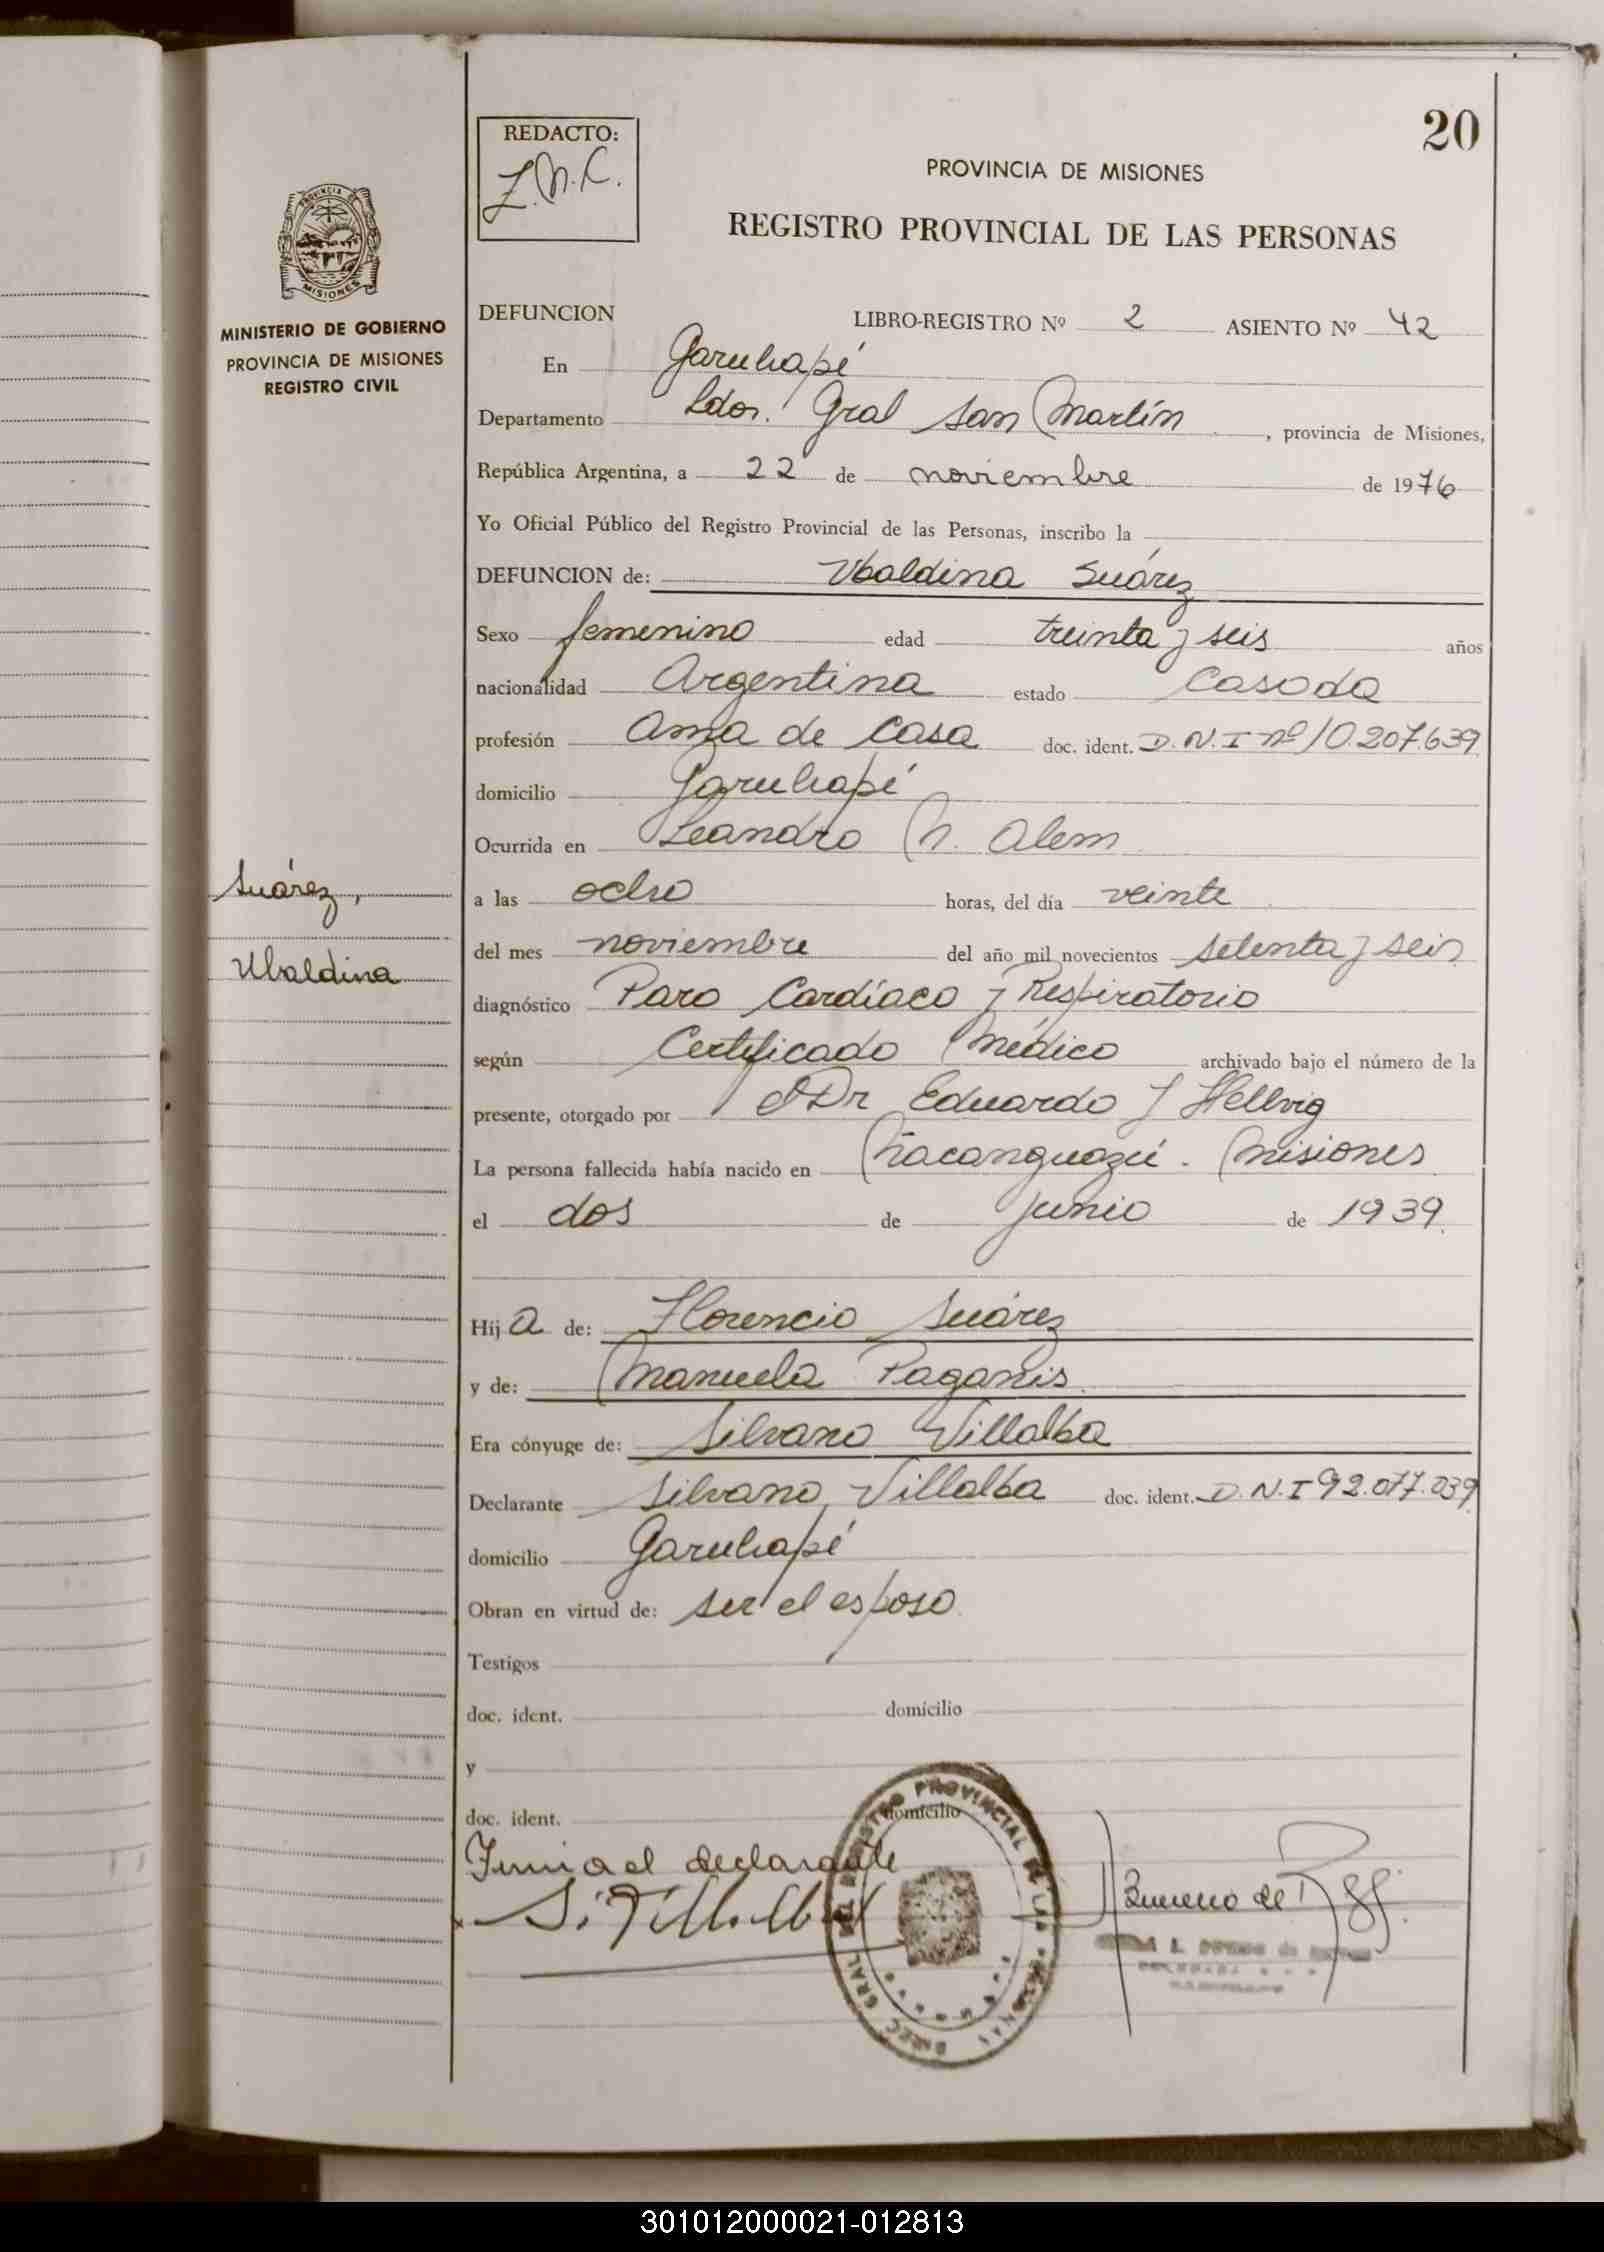 20
REDACTO:
Z.N.C.
PROVINCIA DE MISIONES
REGISTRO PROVINCIAL DE LAS PERSONAS
PROVINCIA DE
MISIONES
MINISTERIO DE GOBIERNO
PROVINCIA DE MISIONES
REGISTRO CIVIL
DEFUNCION LIBRO-REGISTRO Nº 2 ASIENTO Nº 42
En Garuhapé
Departamento Ldor. Gral San Martín, provincia de Misiones,
República Argentina, a 22 de noviembre de 1976
Yo Oficial Público del Registro Provincial de las Personas, inscribo la
DEFUNCION de: Ubaldina Suárez
Sexo femenino edad treinta y seis años
nacionalidad Argentina estado Casada
profesión Ama de Casa doc. ident. D.N.I nº 10.207.639
domicilio Garuhapé
Ocurrida en Leandro N. Alem
Suárez,
Ubaldina
a las ocho horas, del día veinte
del mes noviembre del año mil novecientos setenta y seis
diagnóstico Paro Cardíaco y Respiratorio
según Certificado Médico archivado bajo el número de la
presente, otorgado por Dr Eduardo J Hellvig
La persona fallecida había nacido en Ñacanguazú - Misiones
el dos de junio de 1939
Hij a de: Florencio Suárez
y de: Manuela Paganis
Era cónyuge de: Silvano Villalba
Declarante Silvano Villalba doc. ident. D.N.I 92.077.039
domicilio Garuhapé
Obran en virtud de: ser el esposo
Testigos
doc. ident. domicilio
y
doc. ident. domicilio
Firma el declarante
S. Villalba
DIREC GRAL DEL REGISTRO PROVINCIAL DE LAS PERSONAS
301012000021-012813